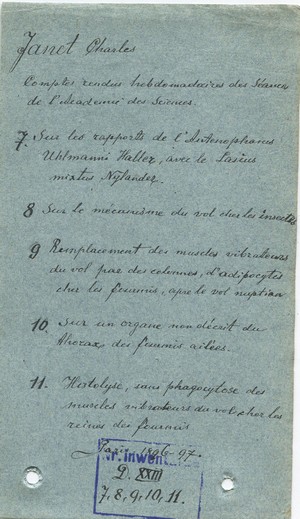 Janet Charles
Comptes rendus hebdomadaires des Séances
de l'Academie des Sciences.
7. Sur les rapports de l'Antenophorus
Uhlmanni Haller, avec le Lasius
mixtus Nylander.
8 Sur le mécanisme du vol chez les insectes
9 Remplacement des muscles vibrateurs
du vol par des colonnes, d'adipocytes
chez les fourmis, après le vol nuptial
10. Sur un organe non décrit du
thorax des fourmis ailées.
11. Histolyse, sans phagocytose des
muscles vibrateurs du vol chez les
reines des fourmis
Paris 1896-97.
Nr. Inwent
D. XXIII
7, 8, 9, 10, 11.